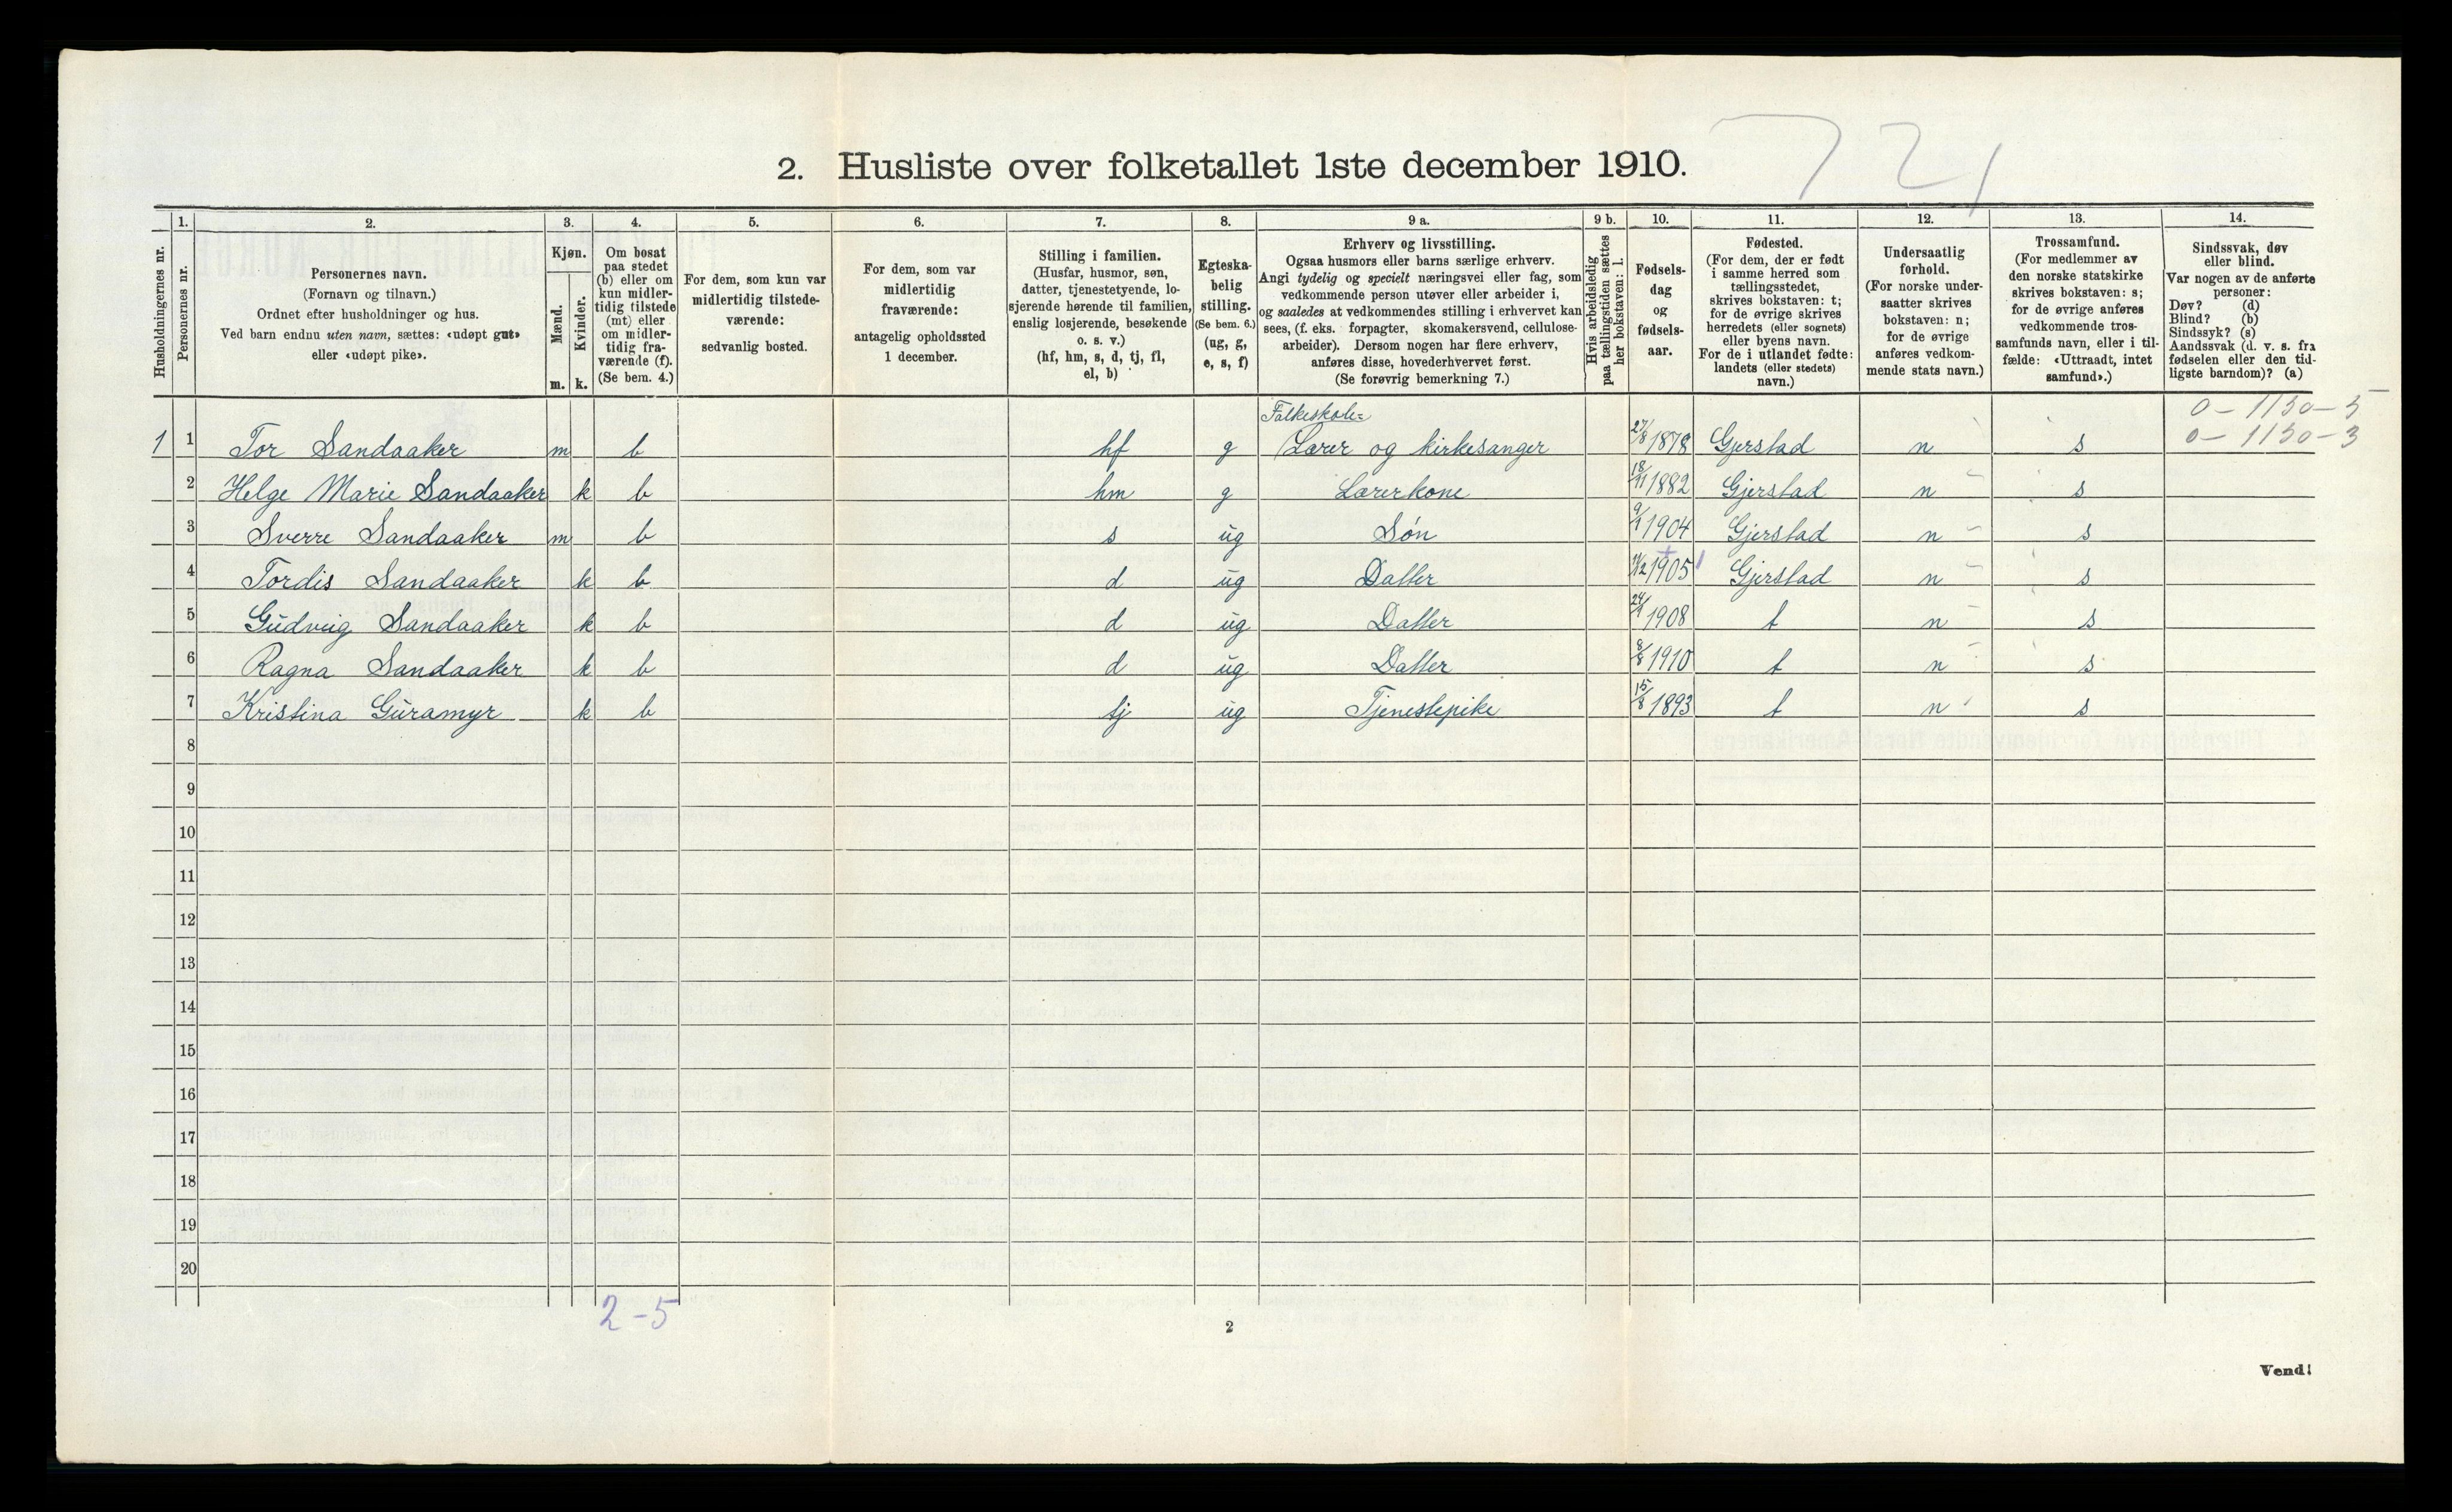 721
2. Husliste over folketallet 1ste december 1910.
Husholdningernes nr.
1.
Personernes nr.
2.
Personernes navn.
(Fornavn og tilnavn.)
Ordnet efter husholdninger og hus.
Ved barn endnu uten navn, sættes: «udøpt gut»
eller «udøpt pike».
3.
Kjøn.
Mænd.
Kvinder.
m. k.
4.
Om bosat
paa stedet
(b) eller om
kun midler-
tidig tilstede
(mt) eller
om midler-
tidig fra-
værende (f).
(Se bem. 4.)
5.
For dem, som kun var
midlertidig tilstede-
værende:
sedvanlig bosted.
6.
For dem, som var
midlertidig
fraværende:
antagelig opholdssted
1 december.
7.
Stilling i familien.
(Husfar, husmor, søn,
datter, tjenestetyende, lo-
sjerende hørende til familien,
enslig losjerende, besøkende
o. s. v.)
(hf, hm, s, d, tj, fl,
el, b)
8.
Egteska-
belig
stilling.
(Se bem. 6.)
(ug, g,
e, s, f)
9 a.
Erhverv og livsstilling.
Ogsaa husmors eller barns særlige erhverv.
Angi tydelig og specielt næringsvei eller fag, som
vedkommende person utøver eller arbeider i,
og saaledes at vedkommendes stilling i erhvervet kan
sees, (f. eks. forpagter, skomakersvend, cellulose-
arbeider). Dersom nogen har flere erhverv,
anføres disse, hovederhvervet først.
(Se forøvrig bemerkning 7.)
9 b.
Hvis arbeidsledig
paa tællingstiden sættes
her bokstaven: l.
10.
Fødsels-
dag
og
fødsels-
aar.
11.
Fødested.
(For dem, der er født
i samme herred som
tællingsstedet,
skrives bokstaven: t;
for de øvrige skrives
herredets (eller sognets)
eller byens navn.
For de i utlandet fødte:
landets (eller stedets)
navn.)
12.
Undersaatlig
forhold.
(For norske under-
saatter skrives
bokstaven: n;
for de øvrige
anføres vedkom-
mende stats navn.)
13.
Trossamfund.
(For medlemmer av
den norske statskirke
skrives bokstaven: s;
for de øvrige anføres
vedkommende tros-
samfunds navn, eller i til-
fælde: «Uttraadt, intet
samfund».)
14.
Sindssvak, døv
eller blind.
Var nogen av de anførte
personer:
Døv? (d)
Blind? (b)
Sindssyk? (s)
Aandssvak (d. v. s. fra
fødselen eller den tid-
ligste barndom)? (a)
0 - 1150 - 5
0 - 1150 - 3
Folkeskole=
1 1 Tor Sandaaker m b hf g Lærer og kirkesanger 27/8 1878 Gjerstad n s
2 Helge Marie Sandaaker k b hm g Lærerkone 18/11 1882 Gjerstad n s
3 Sverre Sandaaker m b s ug Søn 9/1 1904 Gjerstad n s
4 Tordis Sandaaker k b d ug Datter 11/12 1905 Gjerstad n s
5 Gudveig Sandaaker k b d ug Datter 24/1 1908 t n s
6 Ragna Sandaaker k b d ug Datter 8/8 1910 t n s
7 Kristina Guramyr k b tj ug Tjenestepike 15/8 1893 t n s
8
9
10
11
12
13
14
15
16
17
18
19
20
2-5
2
Vend!